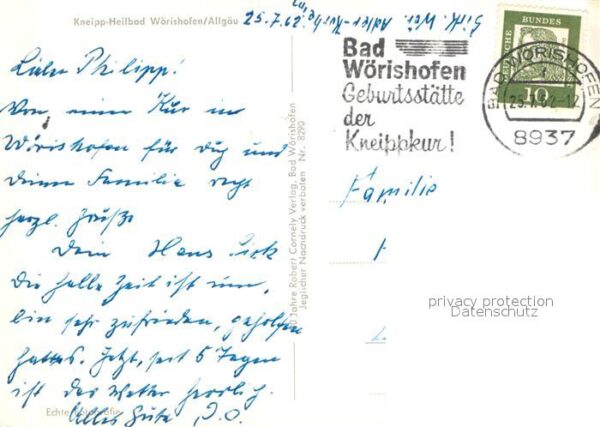 Kneipp-Heilbad Wörishofen/Allgäu
25.7.62
Lieber Philipp!
Von einer Kur in
Wörishofen für Dich und
Deine Familie recht
herzl. Grüße
Dein Hans
Die halbe Zeit ist um,
bin sehr zufrieden, geholfen
hat's. Jetzt, seit 5 Tagen
ist das Wetter herrlich.
Alles Gute, D.O.
Echte
Jahre Robert Cornely Verlag, Bad Wörishofen
Jeglicher Nachdruck verboten Nr. 8290
Bad
Wörishofen
Geburtsstätte
der
Kneippkur!
DEUTSCHE BUNDES
10
BAD WÖRISHOFEN
25.7.62-12
8937
Familie
privacy protection
Datenschutz